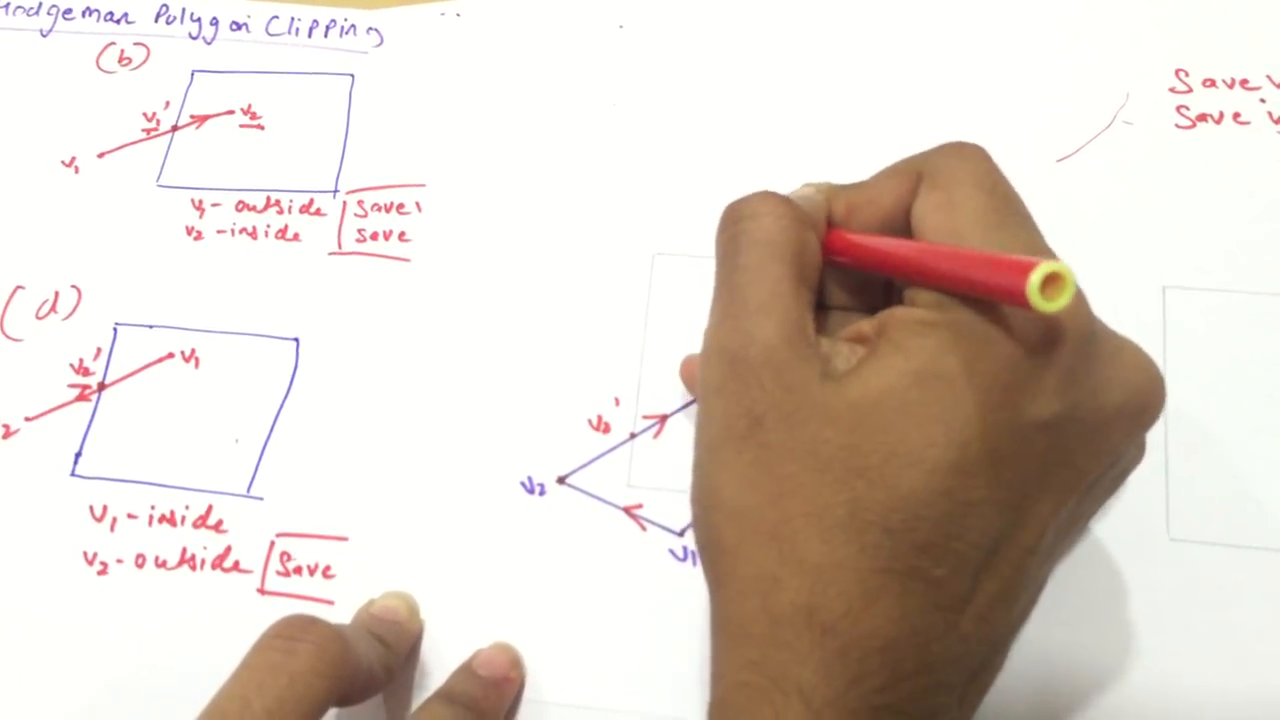 Hodgeman Polygon Clipping
(b)
v₁'
v₂
v₁
v₁- outside Save
v₂ -inside save
(d)
v₂'
v₁
2
v₁-inside
v₂-outside Save
v₂'
v₂
v₁
Save v
Save